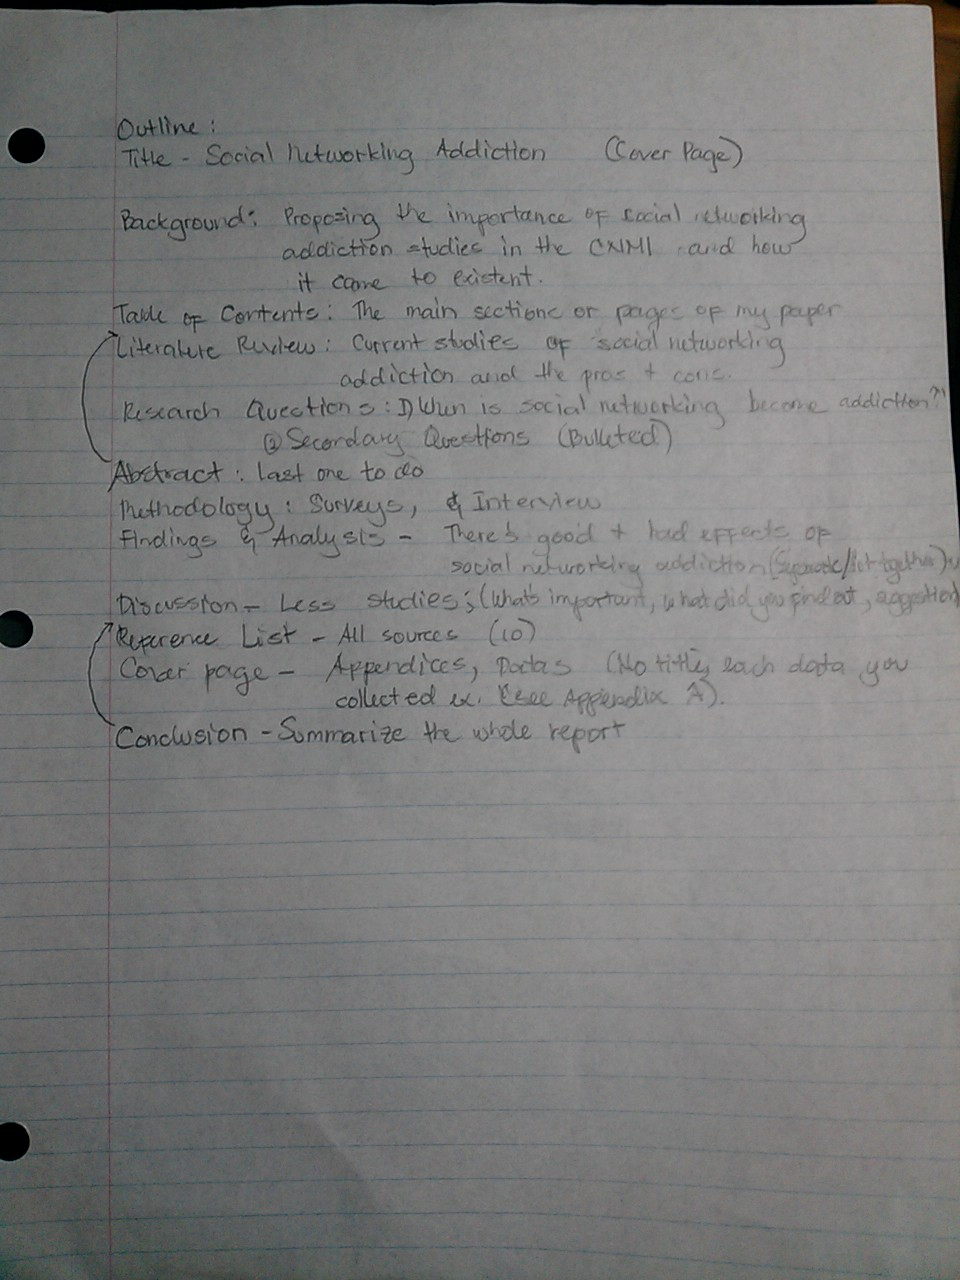 Outline:
Title - Social Networking Addiction (Cover Page)
Background: Proposing the importance of social networking
addiction studies in the CNMI and how
it came to existent.
Table of Contents: The main sections or pages of my paper
Literature Review: Current studies of social networking
addiction and the pros + cons.
Research Questions: 1) When is social networking become addiction?
② Secondary Questions (Bulleted)
Abstract: last one to do
Methodology: Surveys, & Interview
Findings & Analysis - There's good + bad effects of
social networking addiction
Discussion - Less studies; (what's important, what did you find out, suggestion)
Reference List - All sources (10)
Cover page - Appendices, Datas (No title, each data you
collected ex. (see Appendix A).
Conclusion - Summarize the whole report